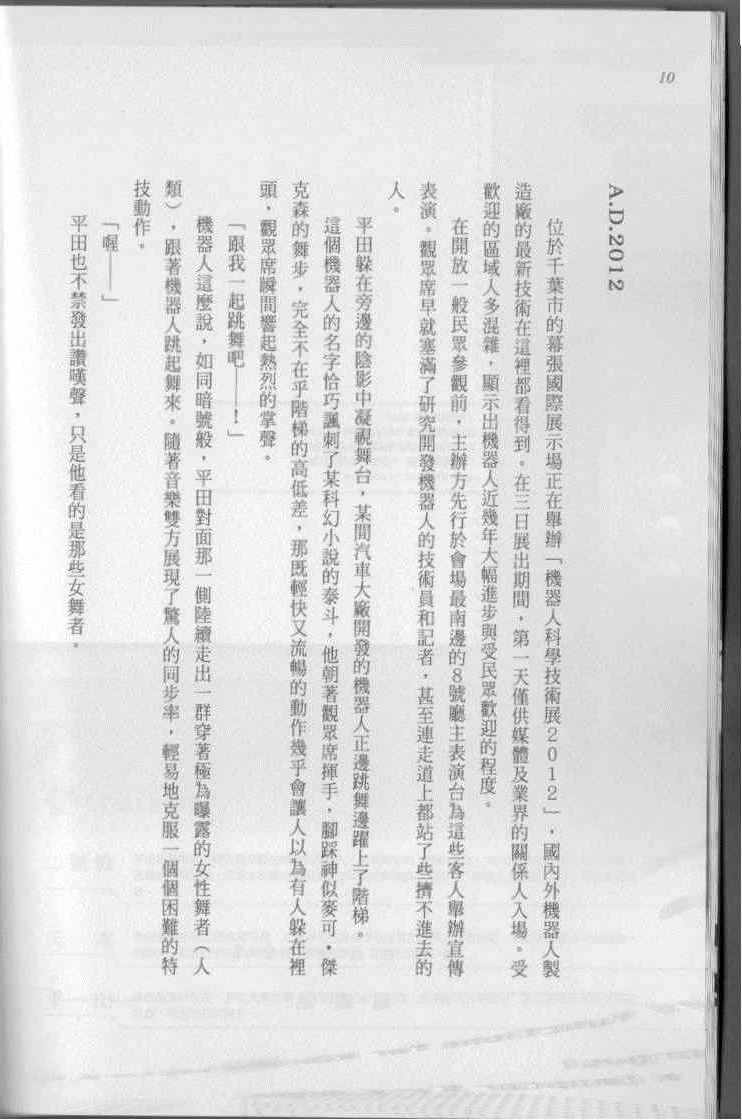 10
A.D.2012
位於千葉市的幕張國際展示場正在舉辦「機器人科學技術展2012」，國內外機器人製
造廠的最新技術在這裡都看得到。在三日展出期間，第一天僅供媒體及業界的關係人入場。受
歡迎的區域人多混雜，顯示出機器人近幾年大幅進步與受民眾歡迎的程度。
在開放一般民眾參觀前，主辦方先行於會場最南邊的8號廳主表演台為這些客人舉辦宣傳
表演。觀眾席早就塞滿了研究開發機器人的技術員和記者，甚至連走道上都站了些擠不進去的
人。
平田躲在旁邊的陰影中凝視舞台，某間汽車大廠開發的機器人正邊跳舞邊躍上了階梯。
這個機器人的名字恰巧諷刺了某科幻小說的泰斗，他朝著觀眾席揮手，腳踩神似麥可·傑
克森的舞步，完全不在乎階梯的高低差，那既輕快又流暢的動作幾乎會讓人以為有人躲在裡
頭，觀眾席瞬間響起熱烈的掌聲。
「跟我一起跳舞吧——！」
機器人這麼說，如同暗號般，平田對面那一側陸續走出一群穿著極為曝露的女性舞者（人
類），跟著機器人跳起舞來。隨著音樂雙方展現了驚人的同步率，輕易地克服一個個困難的特
技動作。
「喔——」
平田也不禁發出讚嘆聲，只是他看的是那些女舞者。